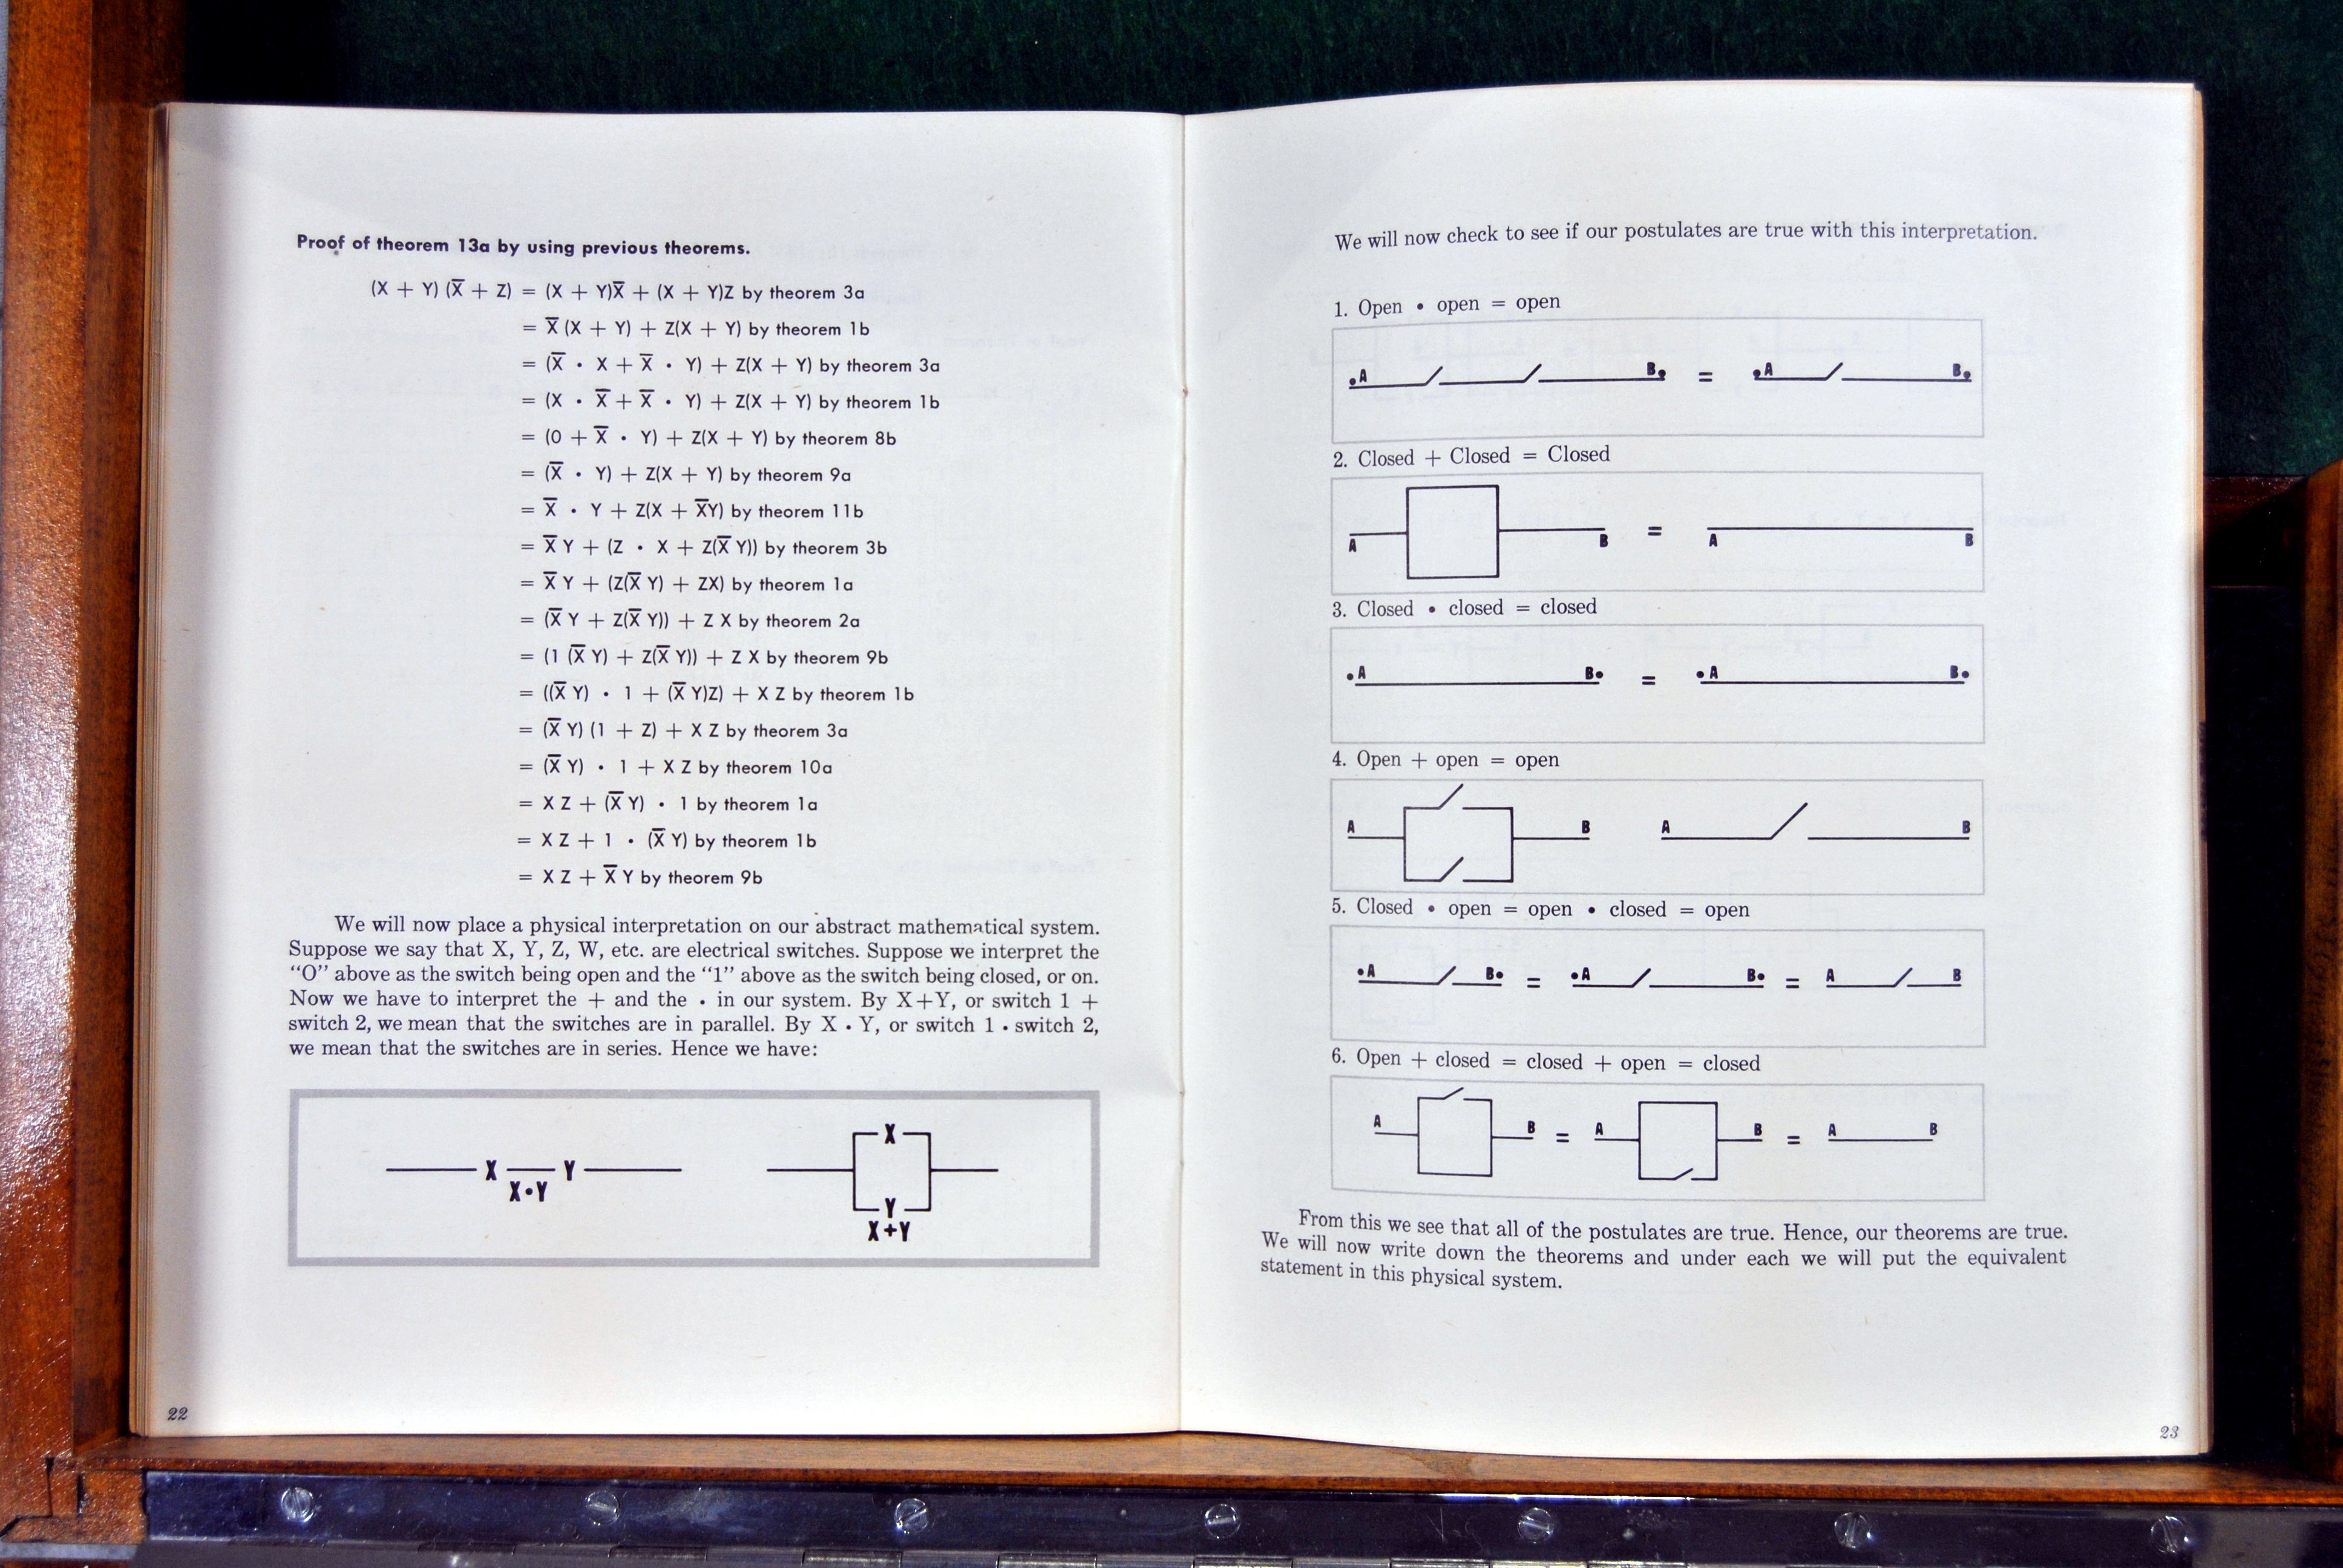 Proof of theorem 13a by using previous theorems.
(X + Y) (X̅ + Z) = (X + Y)X̅ + (X + Y)Z by theorem 3a
= X̅ (X + Y) + Z(X + Y) by theorem 1b
= (X̅ • X + X̅ • Y) + Z(X + Y) by theorem 3a
= (X • X̅ + X̅ • Y) + Z(X + Y) by theorem 1b
= (0 + X̅ • Y) + Z(X + Y) by theorem 8b
= (X̅ • Y) + Z(X + Y) by theorem 9a
= X̅ • Y + Z(X + X̅Y) by theorem 11b
= X̅ Y + (Z • X + Z(X̅ Y)) by theorem 3b
= X̅ Y + (Z(X̅ Y) + ZX) by theorem 1a
= (X̅ Y + Z(X̅ Y)) + Z X by theorem 2a
= (1 (X̅ Y) + Z(X̅ Y)) + Z X by theorem 9b
= ((X̅ Y) • 1 + (X̅ Y)Z) + X Z by theorem 1b
= (X̅ Y) (1 + Z) + X Z by theorem 3a
= (X̅ Y) • 1 + X Z by theorem 10a
= X Z + (X̅ Y) • 1 by theorem 1a
= X Z + 1 • (X̅ Y) by theorem 1b
= X Z + X̅ Y by theorem 9b
We will now place a physical interpretation on our abstract mathematical system.
Suppose we say that X, Y, Z, W, etc. are electrical switches. Suppose we interpret the
"O" above as the switch being open and the "1" above as the switch being closed, or on.
Now we have to interpret the + and the • in our system. By X+Y, or switch 1 +
switch 2, we mean that the switches are in parallel. By X • Y, or switch 1 • switch 2,
we mean that the switches are in series. Hence we have:
X Y
X•Y
X
Y
X+Y
22
We will now check to see if our postulates are true with this interpretation.
1. Open • open = open
A B = A B
2. Closed + Closed = Closed
A B = A B
3. Closed • closed = closed
A B = A B
4. Open + open = open
A B A B
5. Closed • open = open • closed = open
A B = A B = A B
6. Open + closed = closed + open = closed
A B = A B = A B
From this we see that all of the postulates are true. Hence, our theorems are true.
We will now write down the theorems and under each we will put the equivalent
statement in this physical system.
23